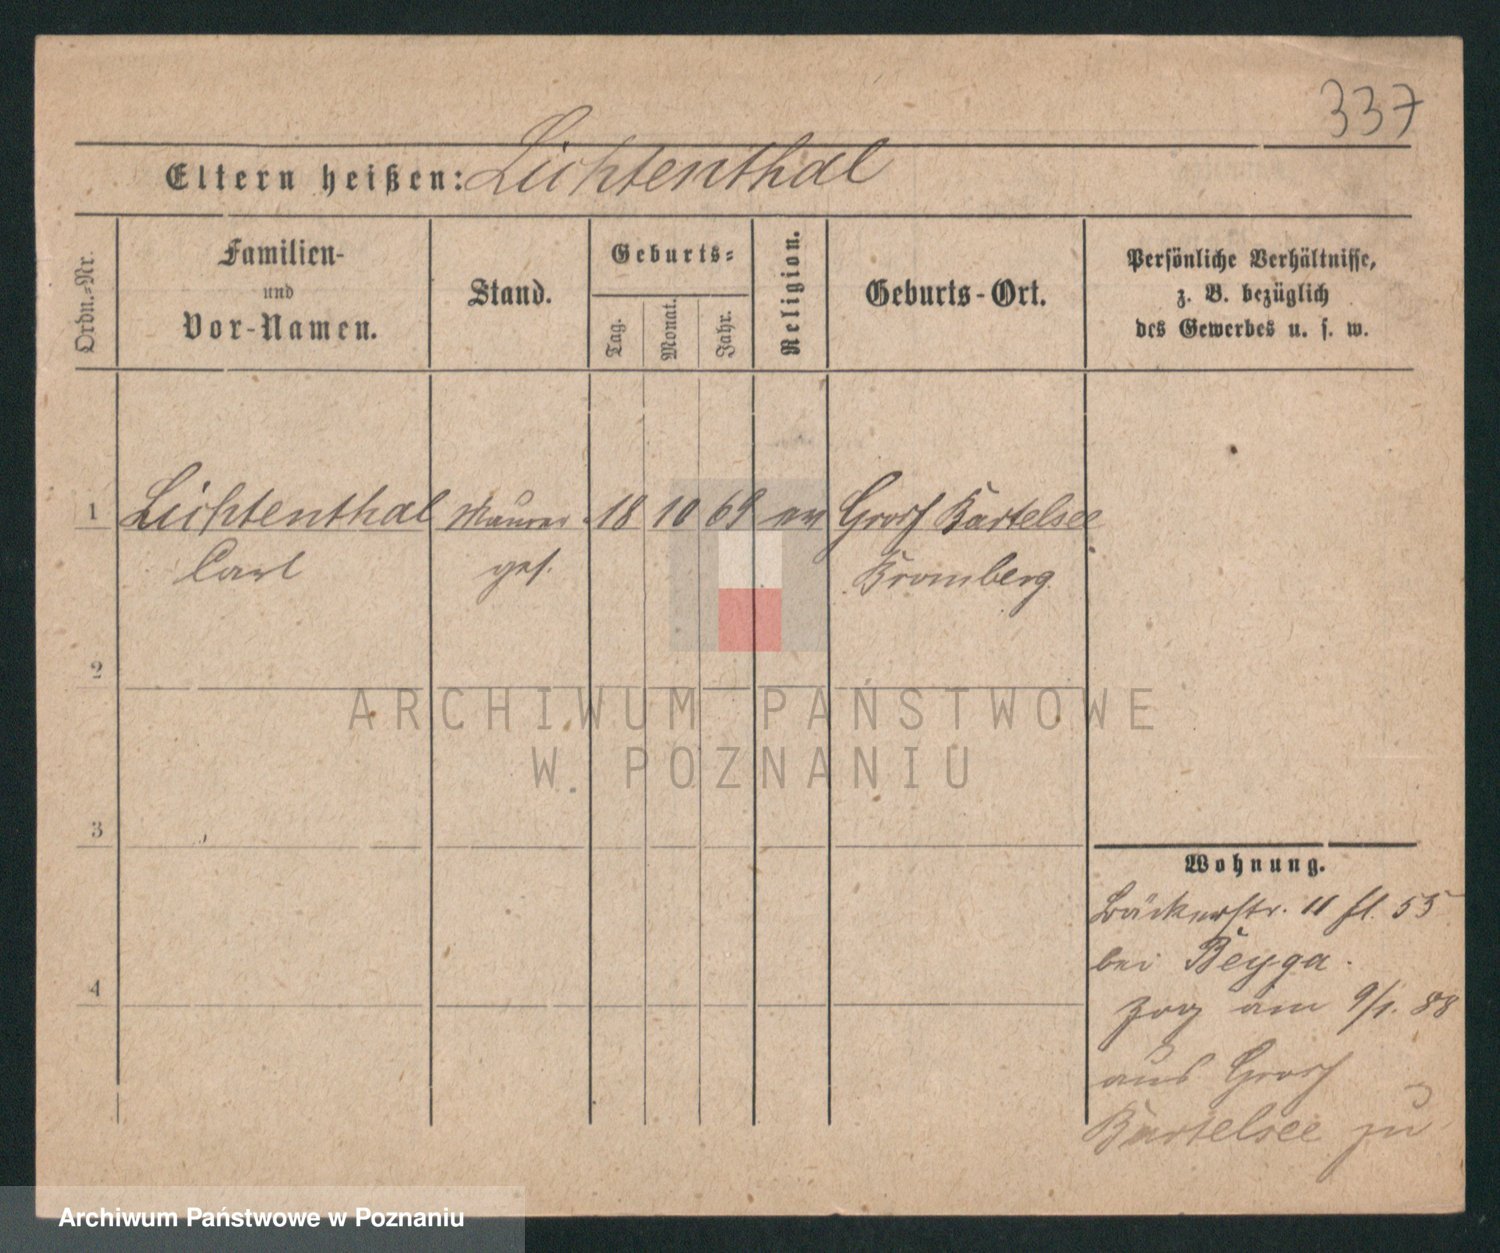 337
Eltern heißen: Lichtenthal
Ordn.-Nr.
Familien-
und
Vor-Namen.
Stand.
Geburts-
Tag.
Monat.
Jahr.
Religion.
Geburts-Ort.
Persönliche Verhältnisse,
z. B. bezüglich
des Gewerbes u. s. w.
1 Lichtenthal Maurer 18 10 69 ev Gross Bartelsee
Carl ges. Bromberg
2
ARCHIWUM PAŃSTWOWE
W POZNANIU
3
Wohnung.
Bäckerstr. 11 55
bei Beyga.
4
zog am 9/1. 88
aus Gross
Bartelsee zu
Archiwum Państwowe w Poznaniu